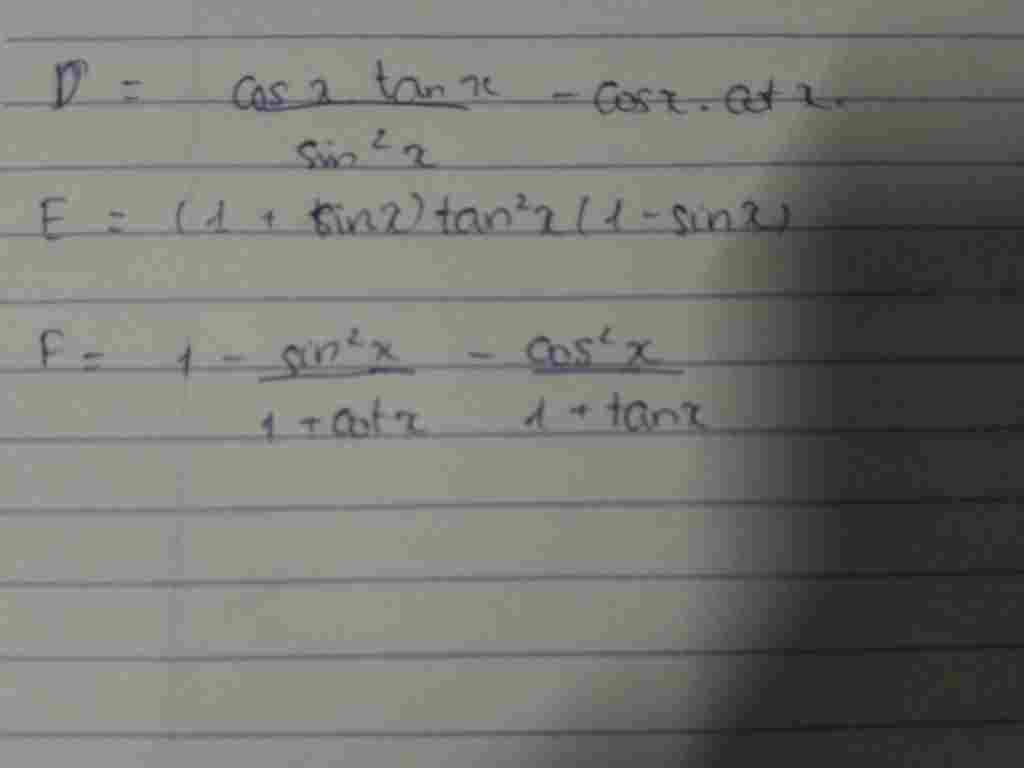 D = cos x tan x / sin² x - cos x . cot x.
E = (1 + sin x) tan² x (1 - sin x)
F = 1 - sin² x / 1 + cot x - cos² x / 1 + tan x